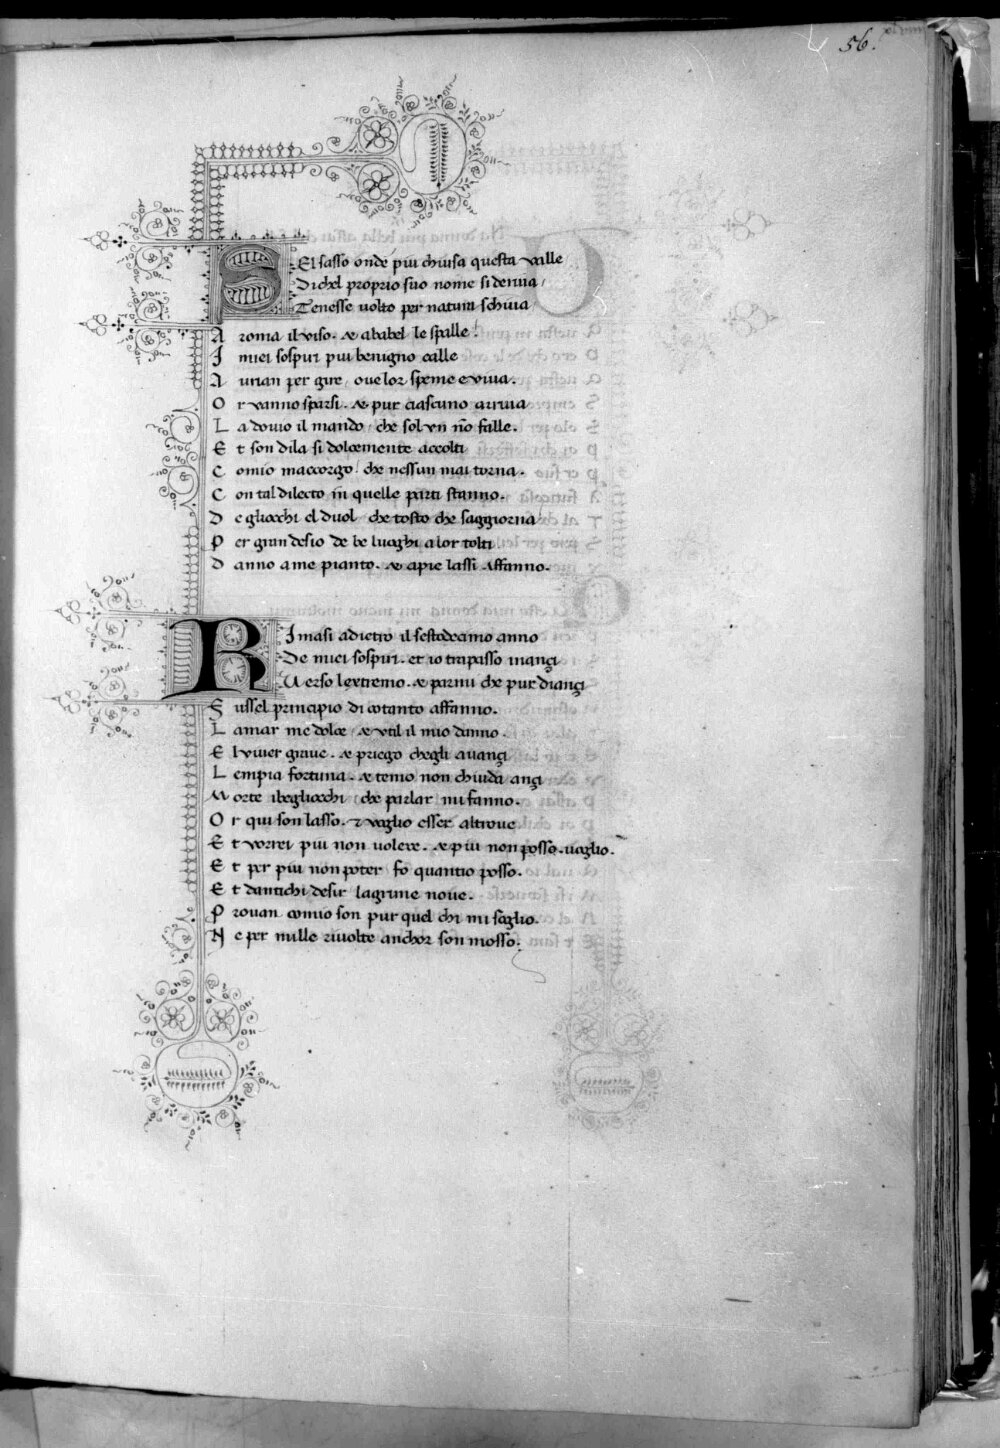 56.
SEl sasso onde piu chiusa questa valle
Di chel proprio suo nome si deriua
Tenesse uolto per natura schiua
A roma il viso. & a babel le spalle
I miei sospiri piu benigno calle
Aurian per gire, oue lor speme e viua.
Or vanno sparsi. & pur ciascuno arriua
La douio il mando, che sol vn nõ falle.
Et son di la si dolcemente accolti
Comio maccorgo, che nessun mai torna.
Con tal dilecto in quelle parti stanno.
Degliocchi el duol, che tosto che saggiorna
Per gran desio de be luoghi a lor tolti
Danno a me pianto. & a pie lassi affanno.
RImasi adietro il sestodecimo anno
De miei sospiri. et io trapasso inançi
Uerso lextremo. & parmi che pur diançi
Fussel principio di cotanto affanno.
Lamar me dolce, & vtil il mio danno.
El viuer graue. & priego chegli auançi
Lempia fortuna. & temo non chiuda ançi
Morte i begliocchi, che parlar mi fanno.
Or qui son lasso. & voglio esser altroue
Et vorrei piu non uolere. & piu non posso. uoglio.
Et per piu non poter fo quantio posso.
Et dantichi desir lagrime noue.
Prouan comio son pur quel chi mi soglio.
Ne per mille riuolte anchor son mosso.